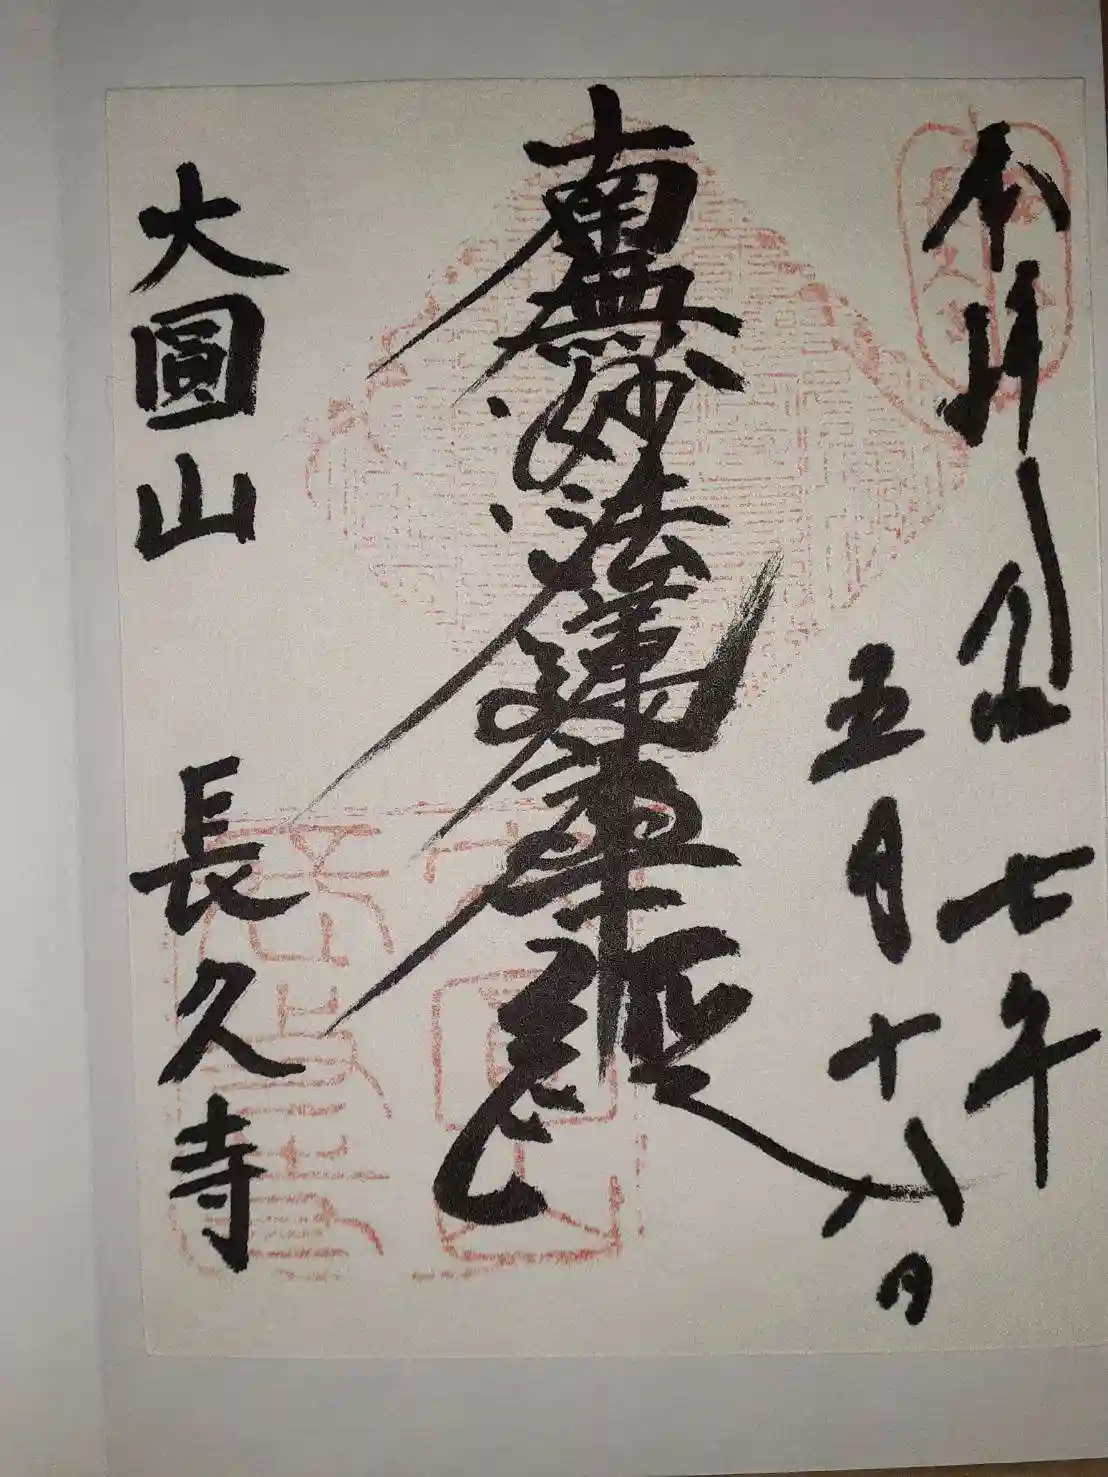 奉拝 令和七年
五月十八日
南無妙法蓮華經
大圓山 長久寺